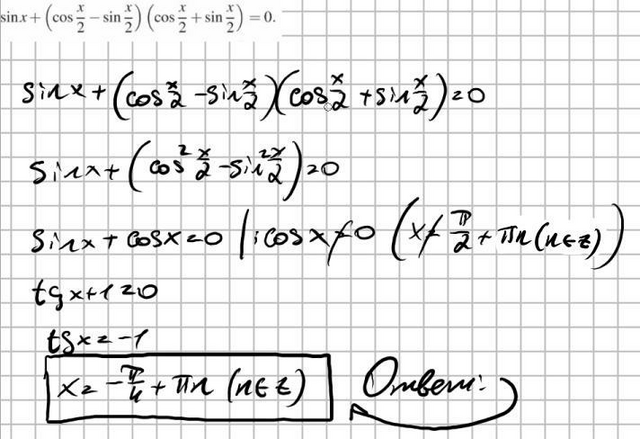 sin x + (cos x/2 − sin x/2) (cos x/2 + sin x/2) = 0.
sin x + (cos x/2 − sin x/2)(cos x/2 + sin x/2) = 0
sin x + (cos² x/2 − sin² x/2) = 0
sin x + cos x = 0 |: cos x ≠ 0 (x ≠ π/2 + πn (n ∈ Z))
tg x + 1 = 0
tg x = −1
x = −π/4 + πn (n ∈ Z) Ответ: